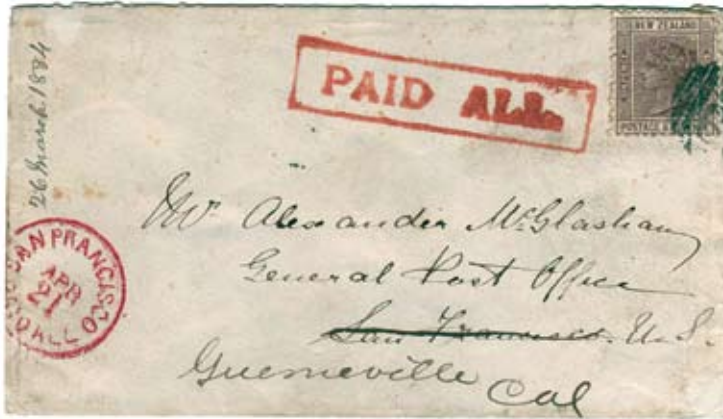 26 March 1884
PAID ALL
NEW ZEALAND
POSTAGE &
SAN FRANCISCO
APR
21
PAID ALL
Mr Alexander McGlashan
General Post Office
San Francisco. U.S.
Guerneville Cal